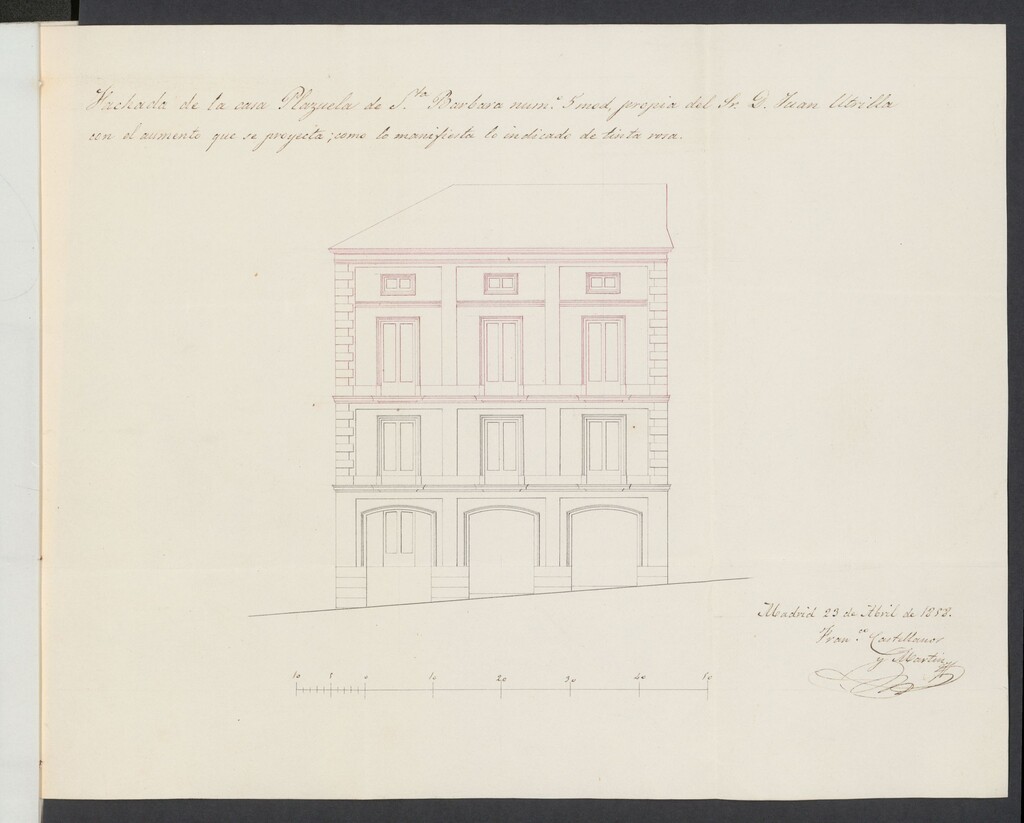 Fachada de la casa Plazuela de S.ta Barbara num.º 5 mod., propia del Sr. D. Juan Utrilla
con el aumento que se proyecta; como lo manifiesta lo indicado de tinta rosa.
Madrid 23 de Abril de 1858.
Fran.co Castellanos
y Martin
10 5 0 10 20 30 40 50